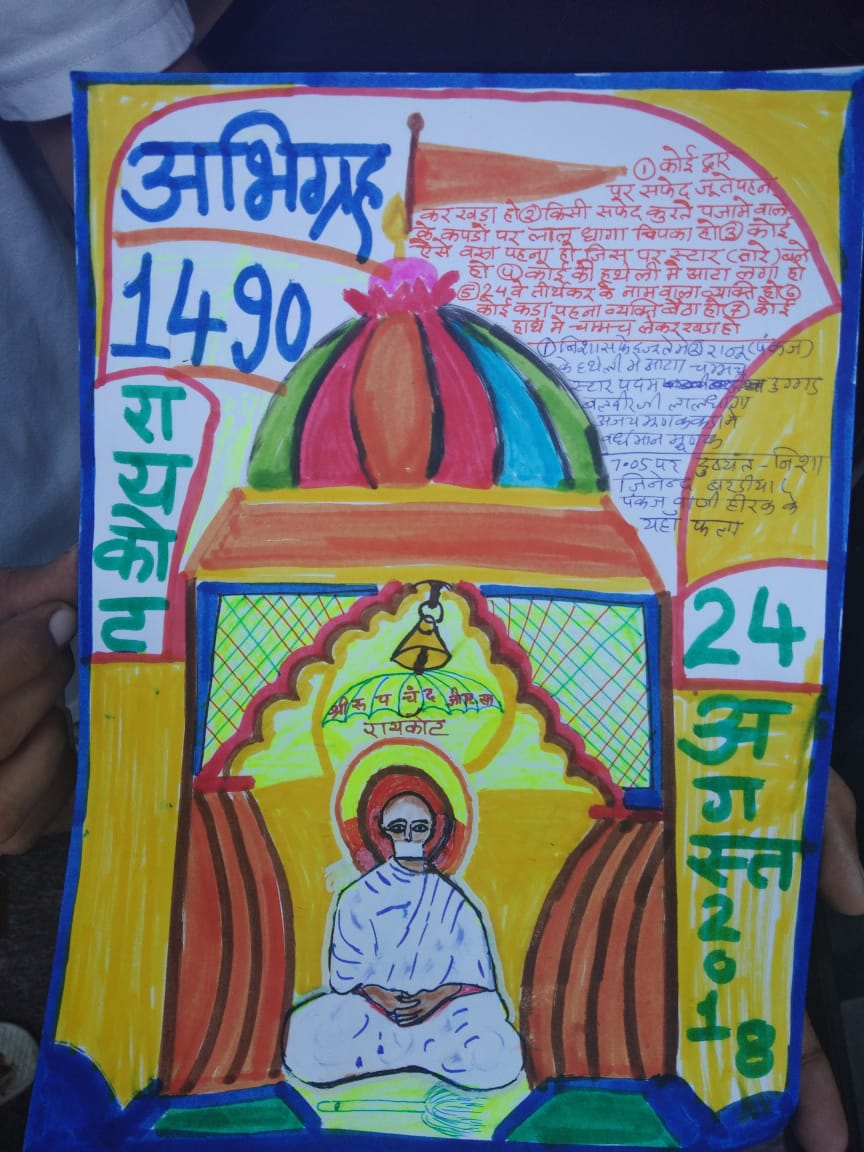 अभिग्रह
1490
① कोई द्वार
पर सफेद जूते पहन
कर खडा हो ② किसी सफेद कुरते पजामे वाले
के कपडों पर लाल धागा चिपका हो ③ कोई
ऐसे वस्त्र पहना हो जिस पर स्टार (तारे) बने
हो ④ कोई की हथेली मे आटा लगा हो
⑤ 24 वे तीर्थंकर के नाम वाला व्यक्ति हो ⑥
कोई कडा पहना व्यक्ति बैठा हो ⑦ कोई
हाथ मे चम्मच लेकर खडा हो
(पंकज)
के हथेली मे आटा चम्मच
स्टार पदम डुग्गड
बलवीर जी लाल धागा
अजय मूणत कडा मे
वर्धमान मूणत
7.05 पर दुष्यंत - निशा
जिनेन्द्र बरडीया
पंकज वाणी हीरक के
यहाँ फला
24
अगस्त
2018
श्री रूप चंद जी म. सा
रायकोट